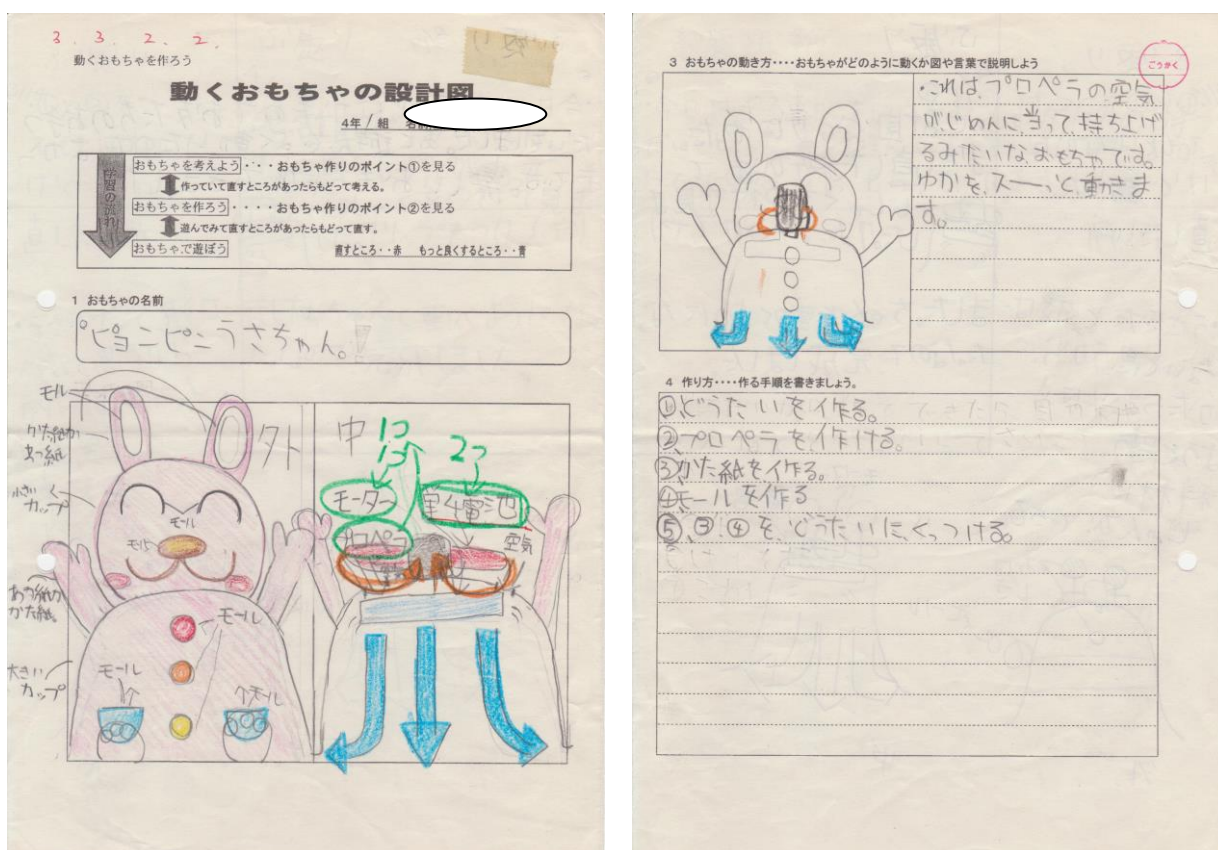 3. 3. 2. 2.
動くおもちゃを作ろう
動くおもちゃの設計図
4年1組 名前
学習の流れ
おもちゃを考えよう・・・おもちゃ作りのポイント①を見る
作っていて直すところがあったらもどって考える。
おもちゃを作ろう・・・・おもちゃ作りのポイント②を見る
遊んでみて直すところがあったらもどって直す。
おもちゃで遊ぼう 直すところ・・赤 もっと良くするところ・・青
1 おもちゃの名前
ピョンピンうさちゃん。!
モル
かた紙か
あつ紙
小さい
カップ
あつ紙か
かた紙。
大きい
カップ
外
モール
モル
モール
モール
モル
中
1つ
1つ
2つ
モーター
単4電池
プロペラ
空気
3 おもちゃの動き方・・・・おもちゃがどのように動くか図や言葉で説明しよう
ごうかく
・これは、プロペラの空気
が、じめんに当って、持ち上げ
るみたいな、おもちゃです。
ゆかを、スーーっと、動きま
す。
4 作り方・・・・作る手順を書きましょう。
①どうたいを作る。
②プロペラを作ける。
③かた紙を作る。
④モールを作る
⑤、③.④を、どうたいに、くっつける。